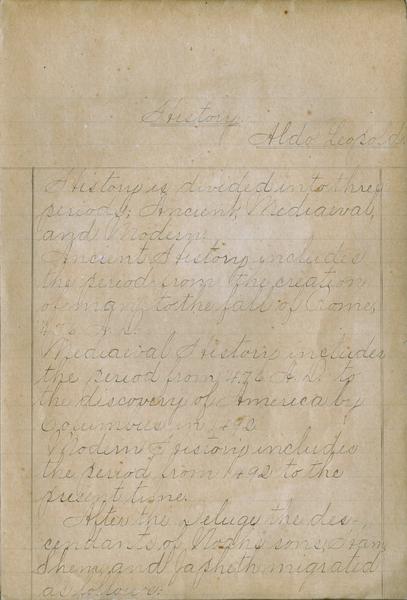 History
Aldo Leopold.
History is divided into three
periods; Ancient, Mediaeval,
and Modern.
Ancient History includes
the period from the creation
of man, to the fall of Rome,
476 A.D.
Mediaeval History includes
the period from 476 A.D. to
the discovery of America by
Columbus in 1492
Modern History includes
the period from 1492 to the
present time.
After the Deluge the des-
cendants of Noah's sons, Ham
Shem, and Japheth migrated
as follows: